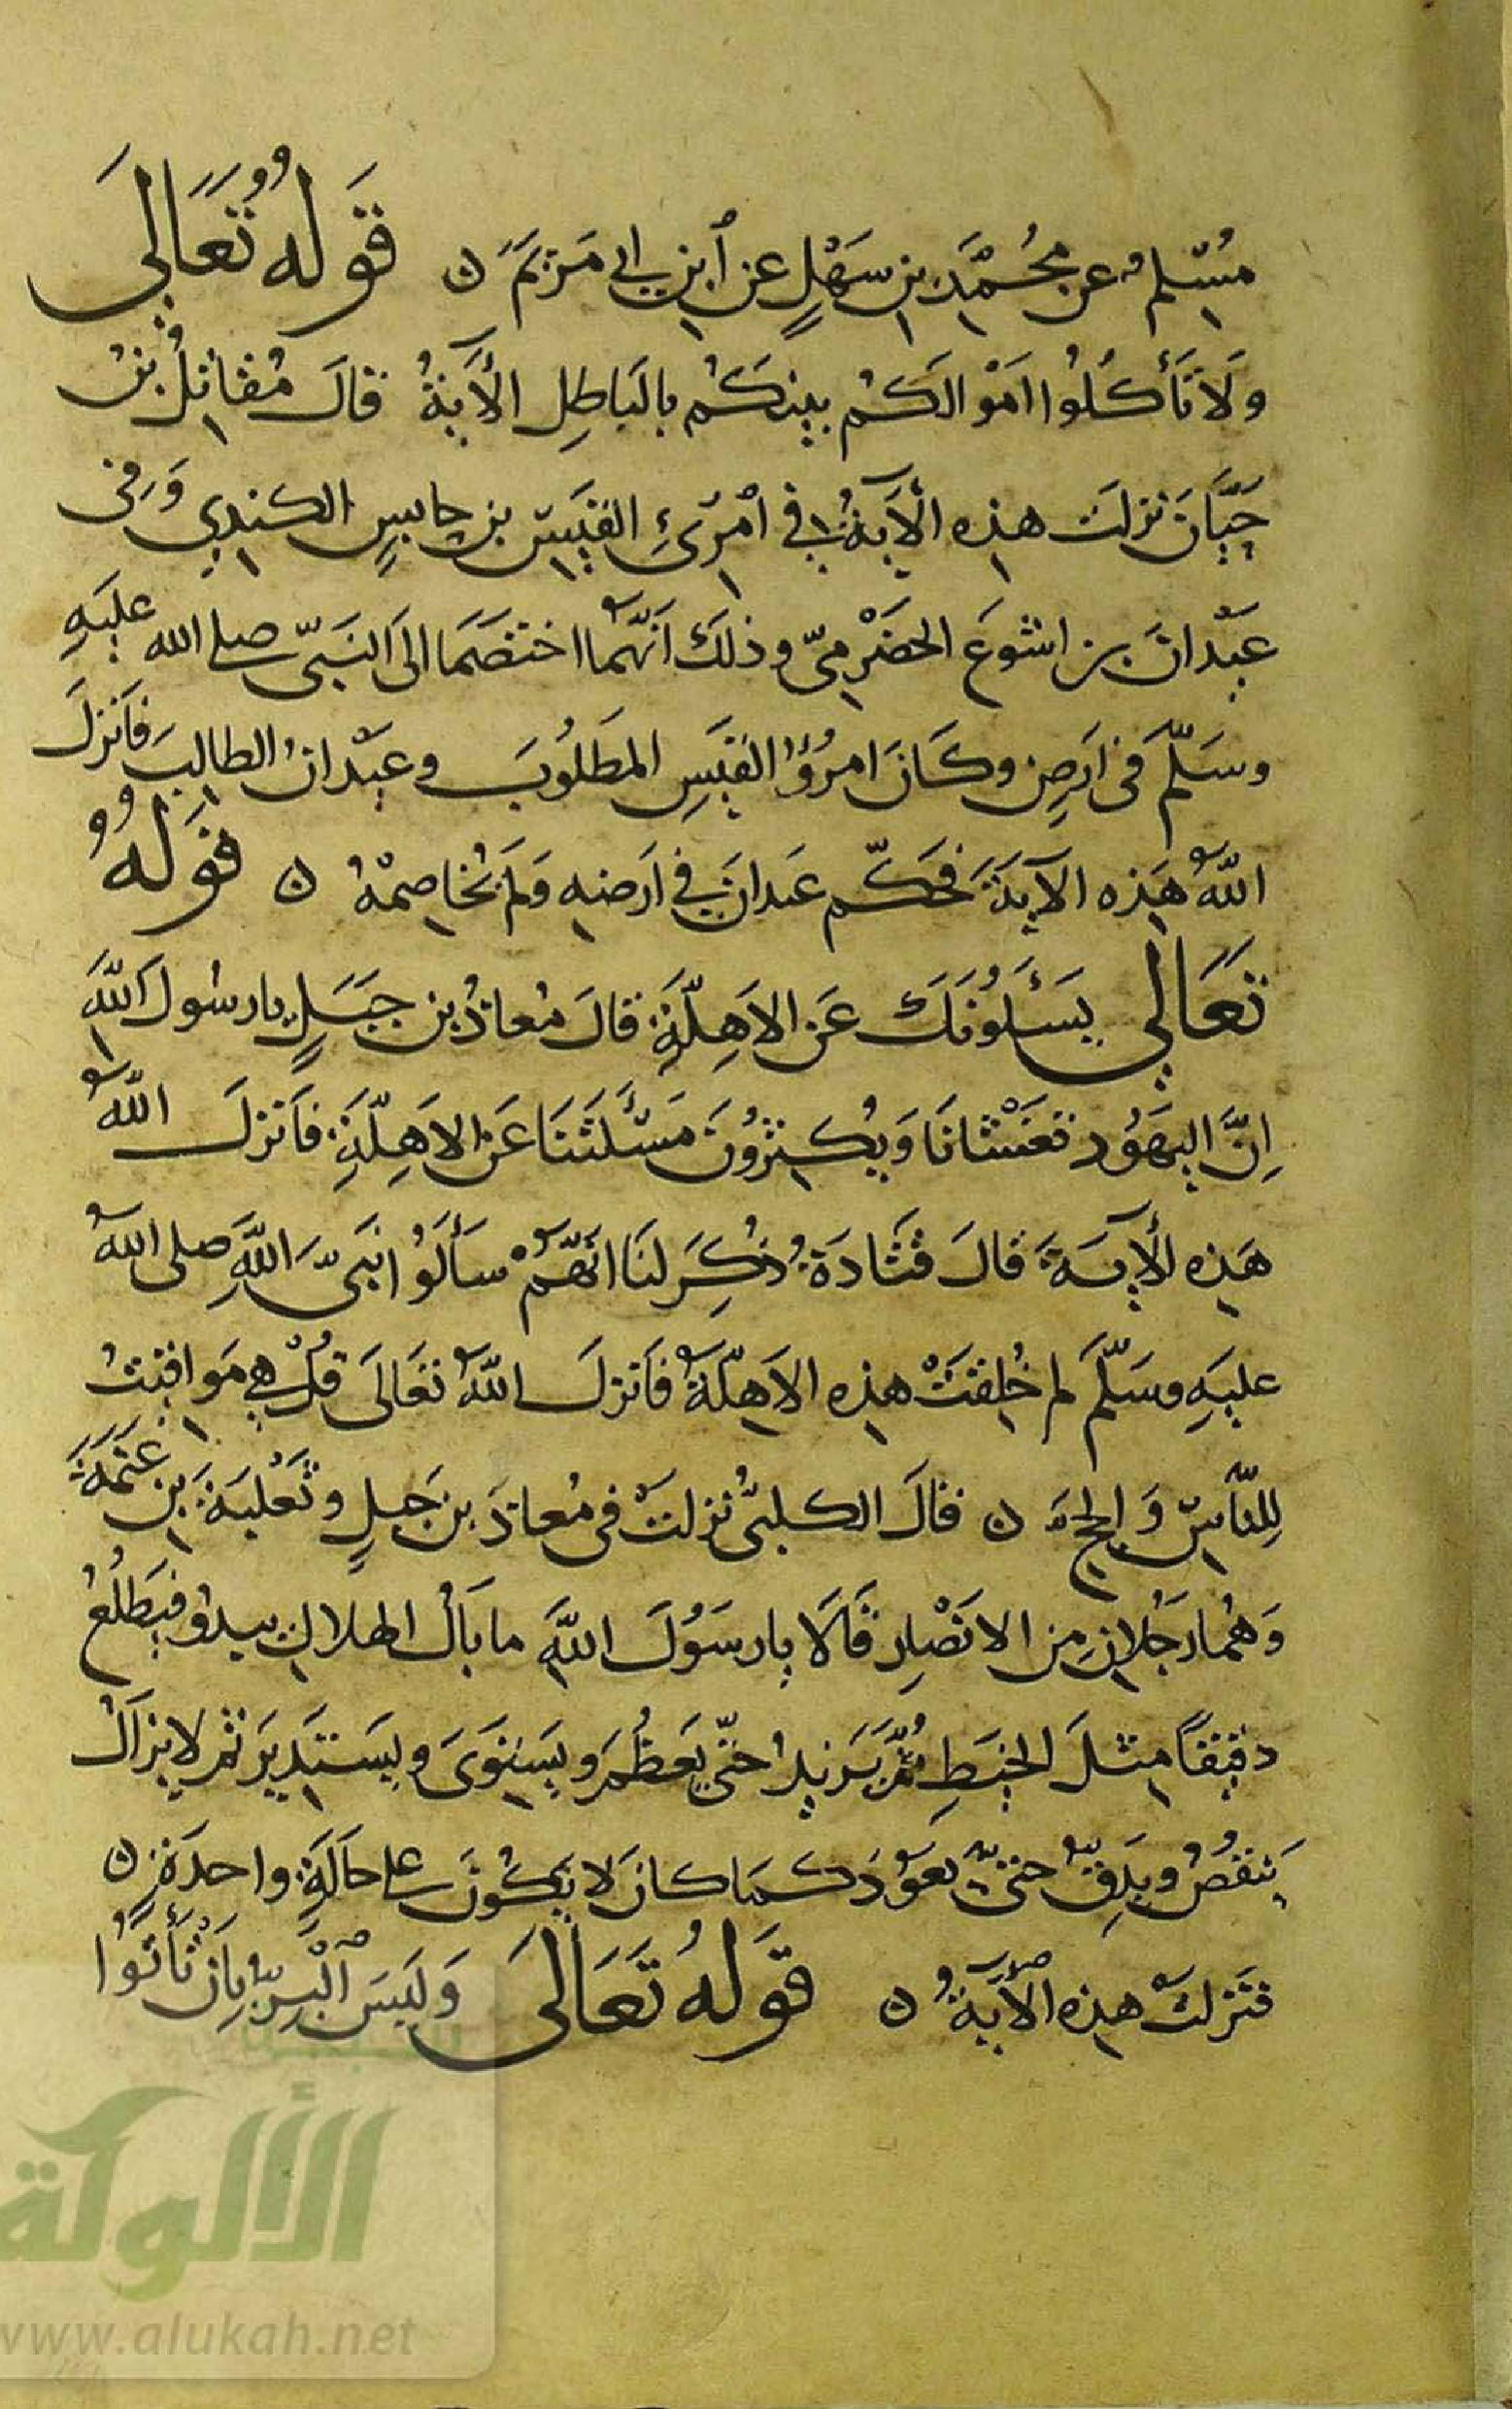 مُسْلِمٌ عن مُحَمَّدِ بنِ سَهْلٍ عن ٱبنِ ابي مَرْيَمَ ن قَوْلُهُ تَعَالَى
وَلَا تَأْكُلُوا اَمْوَالَكُمْ بَيْنَكُمْ بِالْبَاطِلِ الْآيَةُ قالَ مُقَاتِلُ بْنُ
حَيَّانَ نزلَت هذِه الْآيَةُ في امْرِئِ القَيْسِ بنِ حابِسٍ الكِنْدِي وَفي
عَبْدَانَ بن اشوَعَ الحَضْرَمِيّ وذلكَ اَنَّهُمَا اختَصَمَا الى النَبِيّ صلى الله عليهِ
وسَلَّمَ في ارضٍ وكَانَ امرُؤُ القَيسِ المَطلُوبَ وعَبْدانُ الطالِبَ فَاَنزلَ
اللّٰهُ هَذه الآيَةَ فحَكَّم عَبدانَ في ارَضهِ وَلَم يُخَاصِمْهُ ن قَوْلُهُ
تَعَالَى يَسْـَٔلُونَكَ عَنِ الاَهِلَّةِ قالَ مُعاذُ بن جَبَلٍ يا رسُولَ اللّٰهِ
اِنَّ اليَهُودَ تَغْشَانَا وَيُكثِرُونَ مَسْـَٔلَتَنَا عَنِ الاَهِلَّةِ فاَنزلَ اللّٰهُ
هَذِه الْآيَةَ قالَ قَتَادَةُ ذُكِرَ لنَا انَّهُمْ سَأَلُوا نَبِيَّ اللَّهِ صلى اللّٰهُ
عليهِ وسَلَّمَ لم خُلِقَتْ هذِه الاَهِلَّةُ فاَنزلَ اللّٰهُ تَعَالَى قُلْ هِيَ مَوَاقِيتُ
لِلنَّاسِ وَالحَجّ ن قالَ الكلبيُّ نزلَتْ في مُعاذَ بن جَبلٍ وثَعْلَبَةَ بنِ عَنَمَةَ
وَهُمَا رَجُلانِ مِن الانصَارِ قَالَا يا رسَوُلَ اللّٰهِ ما بَالُ الهلالِ يبدُو فيَطلُعُ
دقيقًا مثلَ الخَيطِ ثُمَّ يَزيدُ حتّى يَعظُمَ ويَستَوِىَ ويَستَدِيرَ ثم لا يزَالُ
يَنقُصُ ويَدِقُّ حتىّ يَعوُدَ كَما كانَ لا يَكُونُ على حَالَةٍ واحِدَةٍ ن
فنَزلَتْ هذِه الْآيَةُ ن قَوْلُهُ تَعَالَى وَلَيسَ ٱلْبِرُّ بِاَنْ تَأْتُوا
الألوكة
www.alukah.net